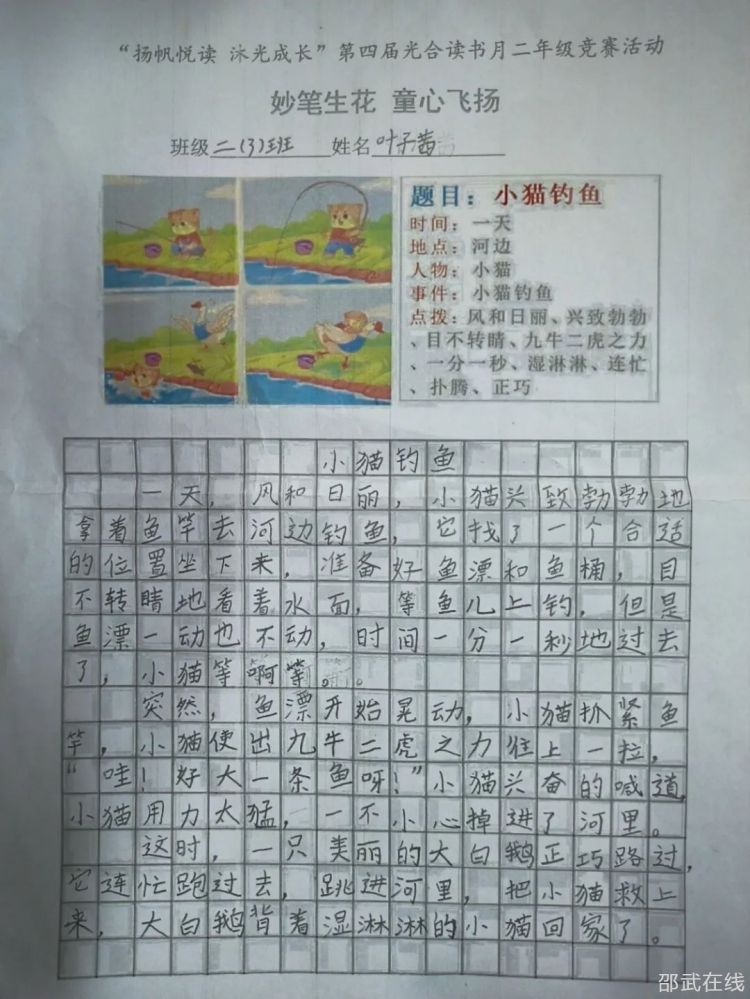 “扬帆悦读 沐光成长”第四届光合读书月二年级竞赛活动
妙笔生花 童心飞扬
班级二(3)班 姓名叶子茜
题目：小猫钓鱼
时间：一天
地点：河边
人物：小猫
事件：小猫钓鱼
点拨：风和日丽、兴致勃勃
、目不转睛、九牛二虎之力
、一分一秒、湿淋淋、连忙
、扑腾、正巧
小猫钓鱼
一天，风和日丽，小猫头致勃勃地
拿着鱼竿去河边钓鱼，它找了一个合适
的位置坐下来，准备好鱼漂和鱼桶，目
不转睛地看着水面，等鱼儿上钓，但是
鱼漂一动也不动，时间一分一秒地过去
了，小猫等啊等。
突然，鱼漂开始晃动，小猫抓紧鱼
竿，小猫使出九牛二虎之力往上一拉，
“哇！好大一条鱼呀！”小猫兴奋的喊道，
小猫用力太猛，一不小心掉进了河里。
这时，一只美丽的大白鹅正巧路过，
它连忙跑过去，跳进河里，把小猫救上
来，大白鹅背着湿淋淋的小猫回家了。
邵武在线